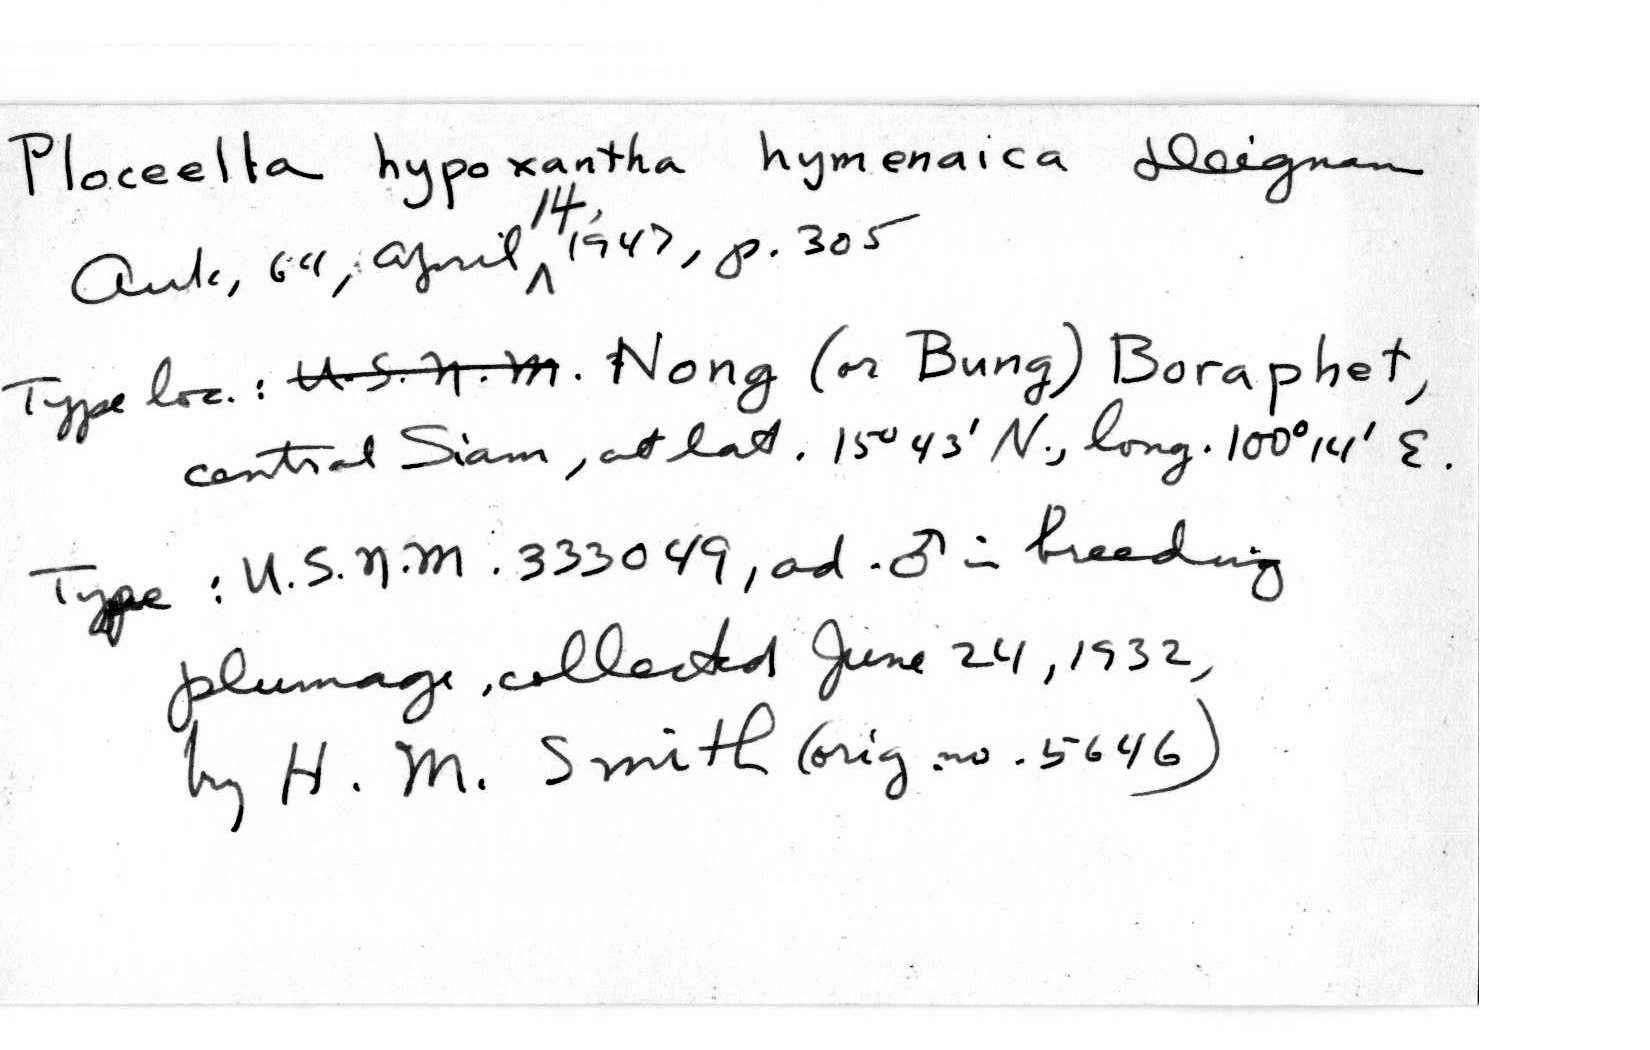 Ploceella hypoxantha hymenaica Deignan
Auk, 64, April 14, 1947, p. 305
Type loc.: U.S.N.M. Nong (or Bung) Boraphet,
central Siam, at lat. 15° 43' N., long. 100° 14' E.
Type: U.S.N.M. 333049, ad. ♂ in breeding
plumage, collected June 24, 1932,
by H. M. Smith (orig. no. 5646)